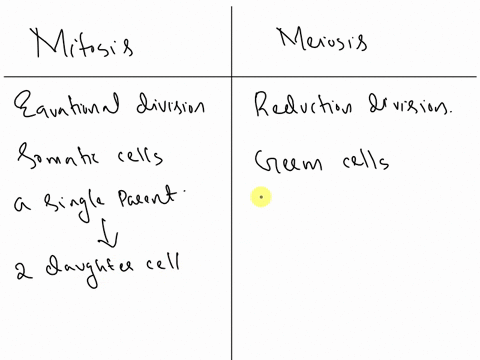 Mitosis
Meiosis
Equational division
Reduction division.
Somatic cells
Germ cells
a single Parent.
2 daughter cell